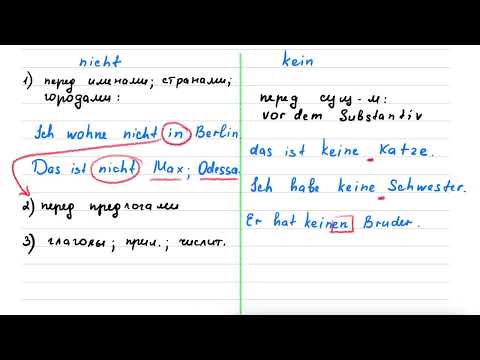 nicht
1) перед именами; странами;
городами:
Ich wohne nicht in Berlin.
Das ist nicht Max; Odessa.
2) перед предлогами
3) глаголы; прил.; числит.
kein
перед сущ-м:
vor dem Substantiv
das ist keine Katze.
Ich habe keine Schwester.
Er hat keinen Bruder.